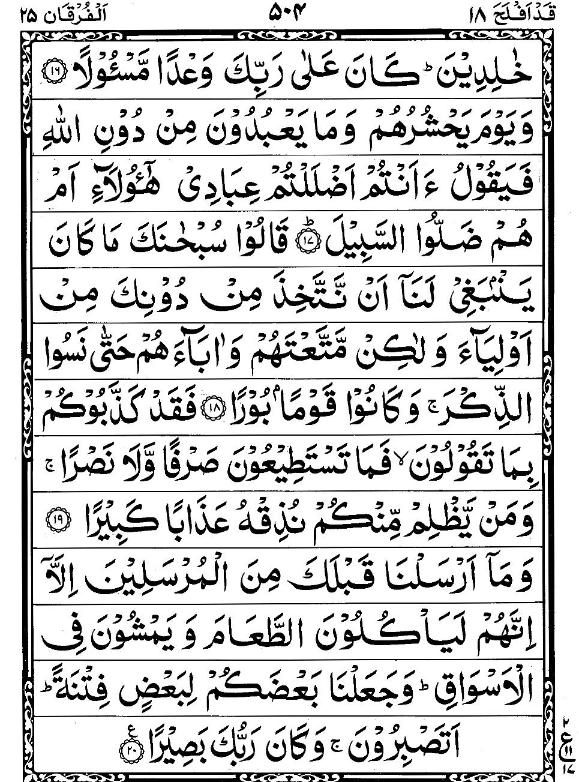 قَدْ اَفْلَحَ ١٨ ٥٠٤ اَلْفُرْقَان ٢٥
خٰلِدِيْنَ ؕ كَانَ عَلٰى رَبِّكَ وَعْدًا مَّسْـُٔوْلًا ﴿١٦﴾
وَيَوْمَ يَحْشُرُهُمْ وَمَا يَعْبُدُوْنَ مِنْ دُوْنِ اللّٰهِ
فَيَقُوْلُ ءَاَنْتُمْ اَضْلَلْتُمْ عِبَادِىْ هٰٓؤُلَآءِ اَمْ
هُمْ ضَلُّوا السَّبِيْلَ ؕ﴿١٧﴾ قَالُوْا سُبْحٰنَكَ مَا كَانَ
يَنْۢبَغِىْ لَنَاۤ اَنْ نَّتَّخِذَ مِنْ دُوْنِكَ مِنْ
اَوْلِيَآءَ وَلٰكِنْ مَّتَّعْتَهُمْ وَاٰبَآءَهُمْ حَتّٰى نَسُوا
الذِّكْرَ ۚ وَكَانُوْا قَوْمًۢا بُوْرًا ﴿١٨﴾ فَقَدْ كَذَّبُوْكُمْ
بِمَا تَقُوْلُوْنَ ۙ فَمَا تَسْتَطِيْعُوْنَ صَرْفًا وَّلَا نَصْرًا ۚ
وَمَنْ يَّظْلِمْ مِّنْكُمْ نُذِقْهُ عَذَابًا كَبِيْرًا ﴿١٩﴾
وَمَاۤ اَرْسَلْنَا قَبْلَكَ مِنَ الْمُرْسَلِيْنَ اِلَّاۤ
اِنَّهُمْ لَيَاْكُلُوْنَ الطَّعَامَ وَيَمْشُوْنَ فِى
الْاَسْوَاقِ ؕ وَجَعَلْنَا بَعْضَكُمْ لِبَعْضٍ فِتْنَةً ؕ
اَتَصْبِرُوْنَ ۚ وَكَانَ رَبُّكَ بَصِيْرًا ﴿٢٠﴾ ع